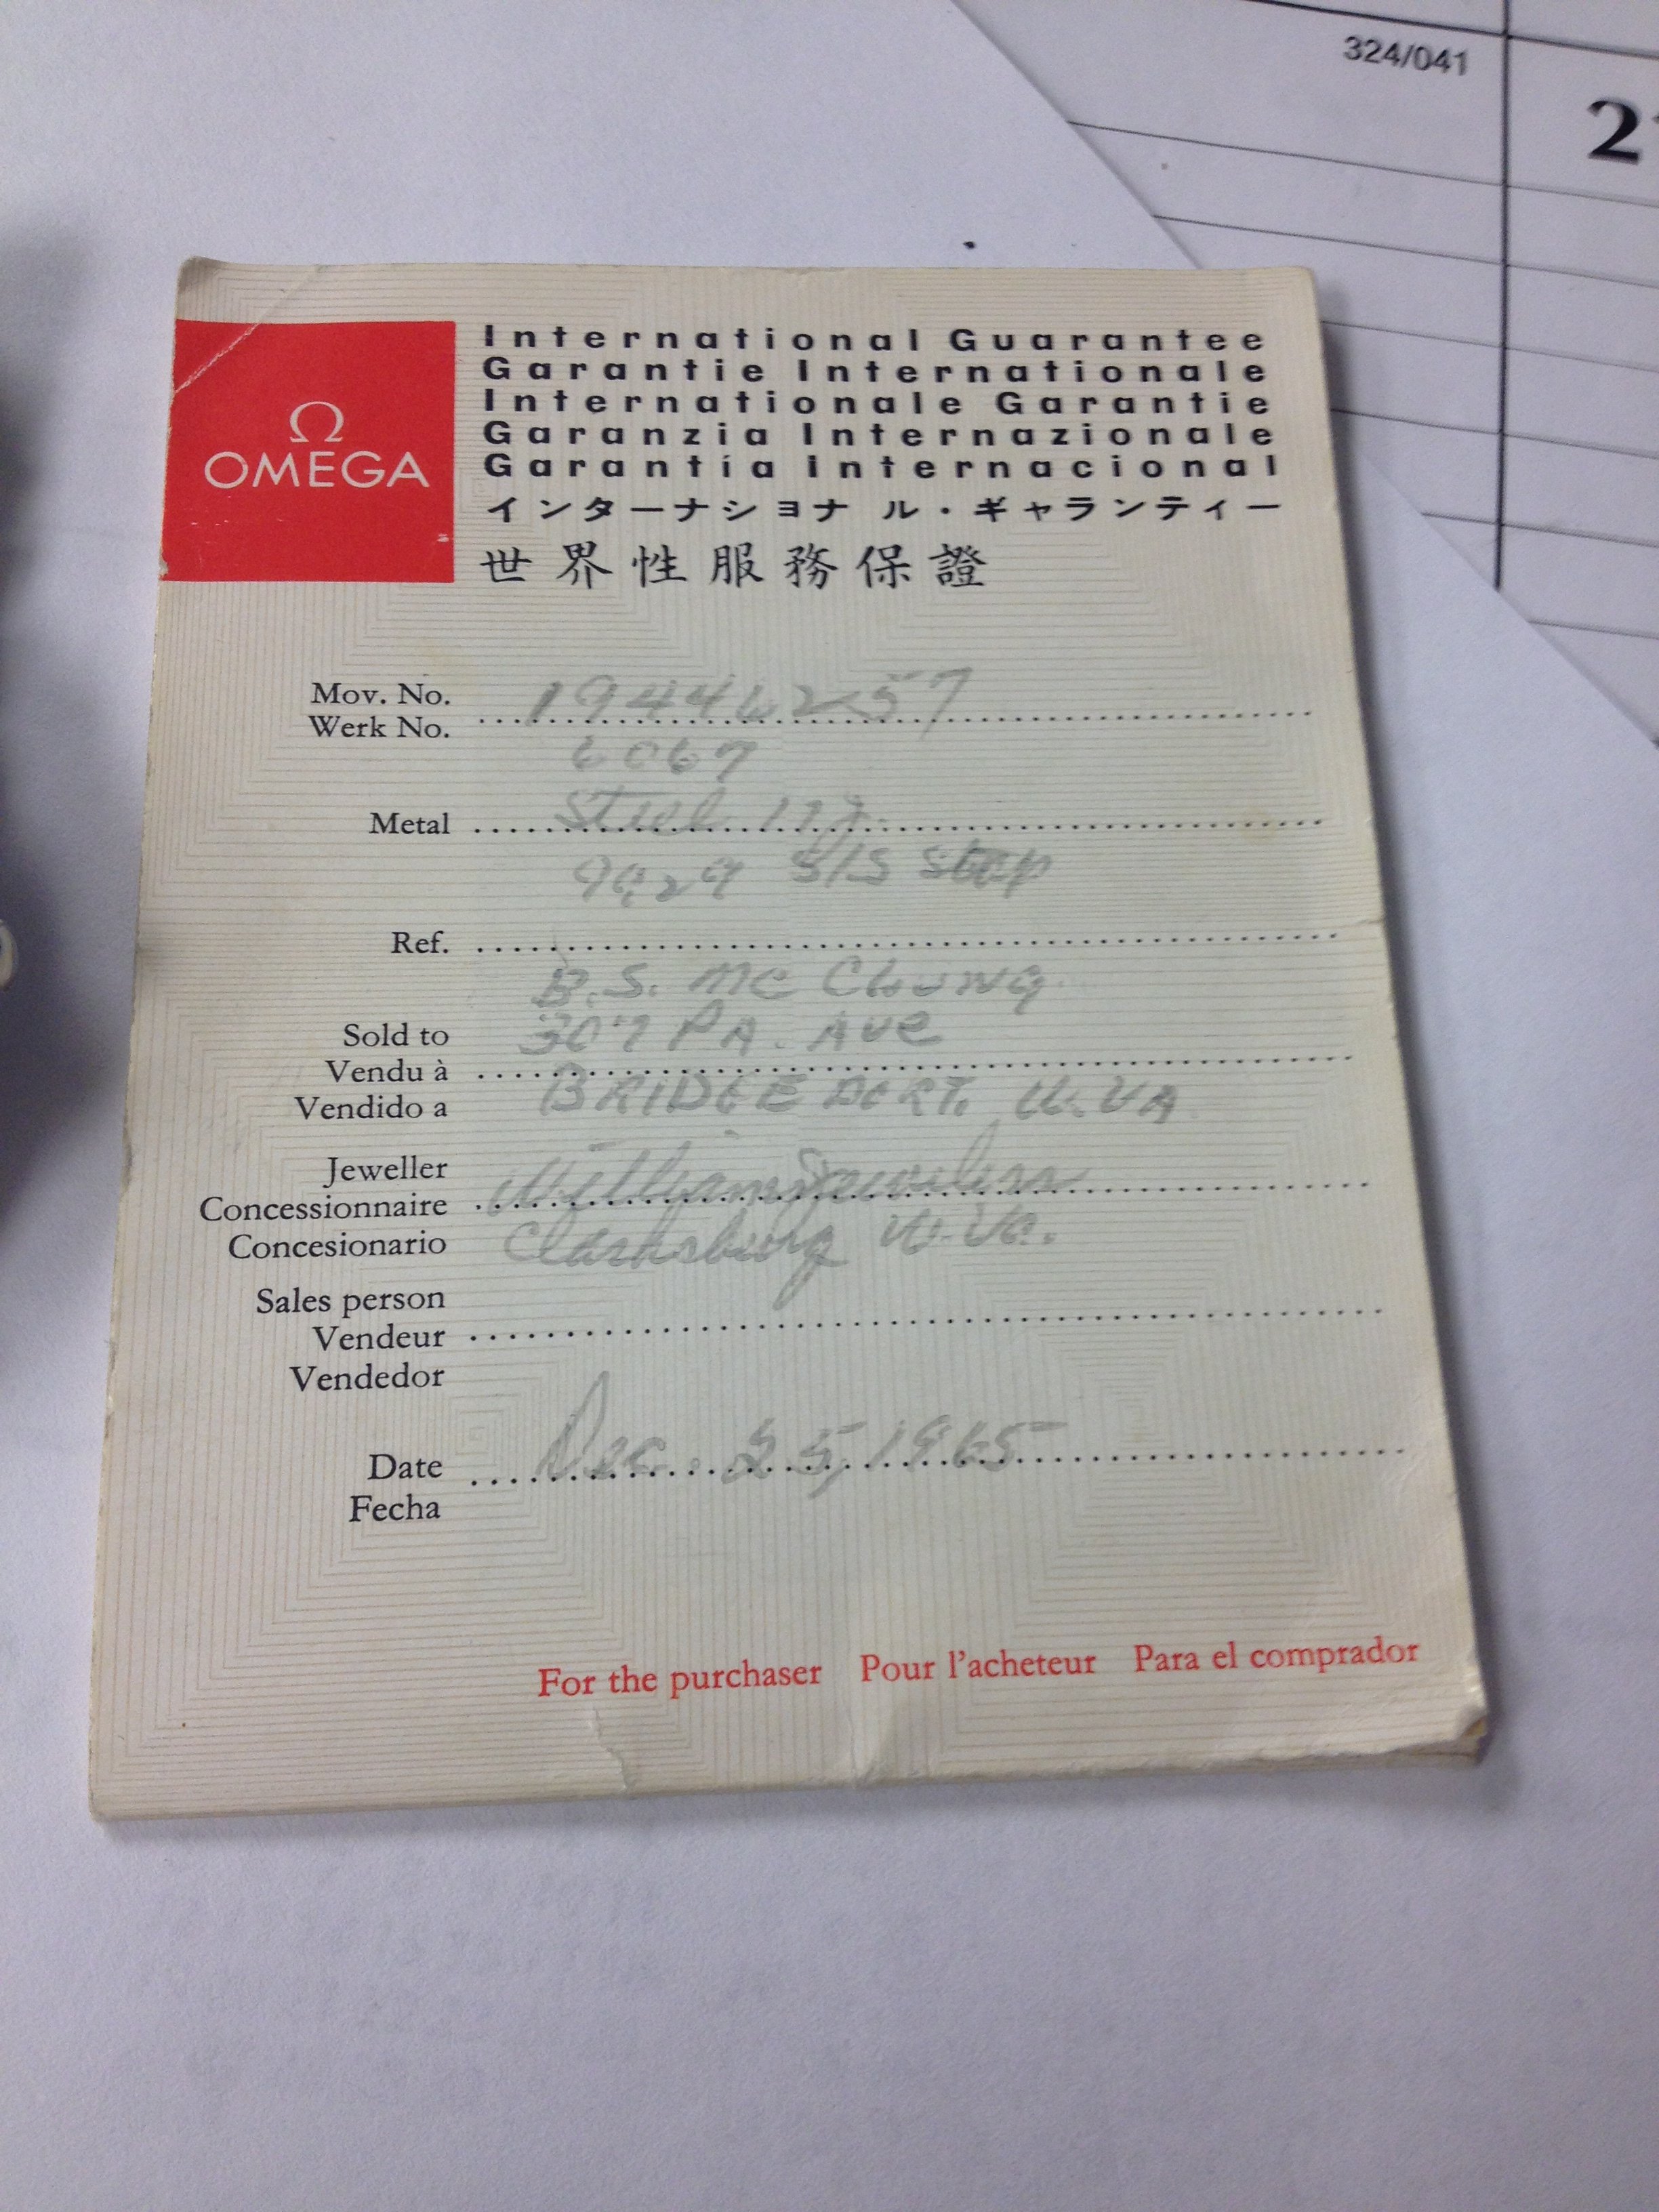 324/041
2
Ω
OMEGA
International Guarantee
Garantie Internationale
Internationale Garantie
Garanzia Internazionale
Garantía Internacional
インターナショナル・ギャランティー
世界性服務保證
Mov. No.
Werk No.
19446257
6067
Metal Steel 17J.
S/S Strap
Ref.
B.S. Mc Clung
Sold to 307 PA. Ave
Vendu à
Vendido a BRIDGEPORT. W.VA
Jeweller
Concessionnaire Williams Jewelers
Concesionario Clarksburg W.Va.
Sales person
Vendeur
Vendedor
Date Dec. 25, 1965
Fecha
For the purchaser Pour l'acheteur Para el comprador